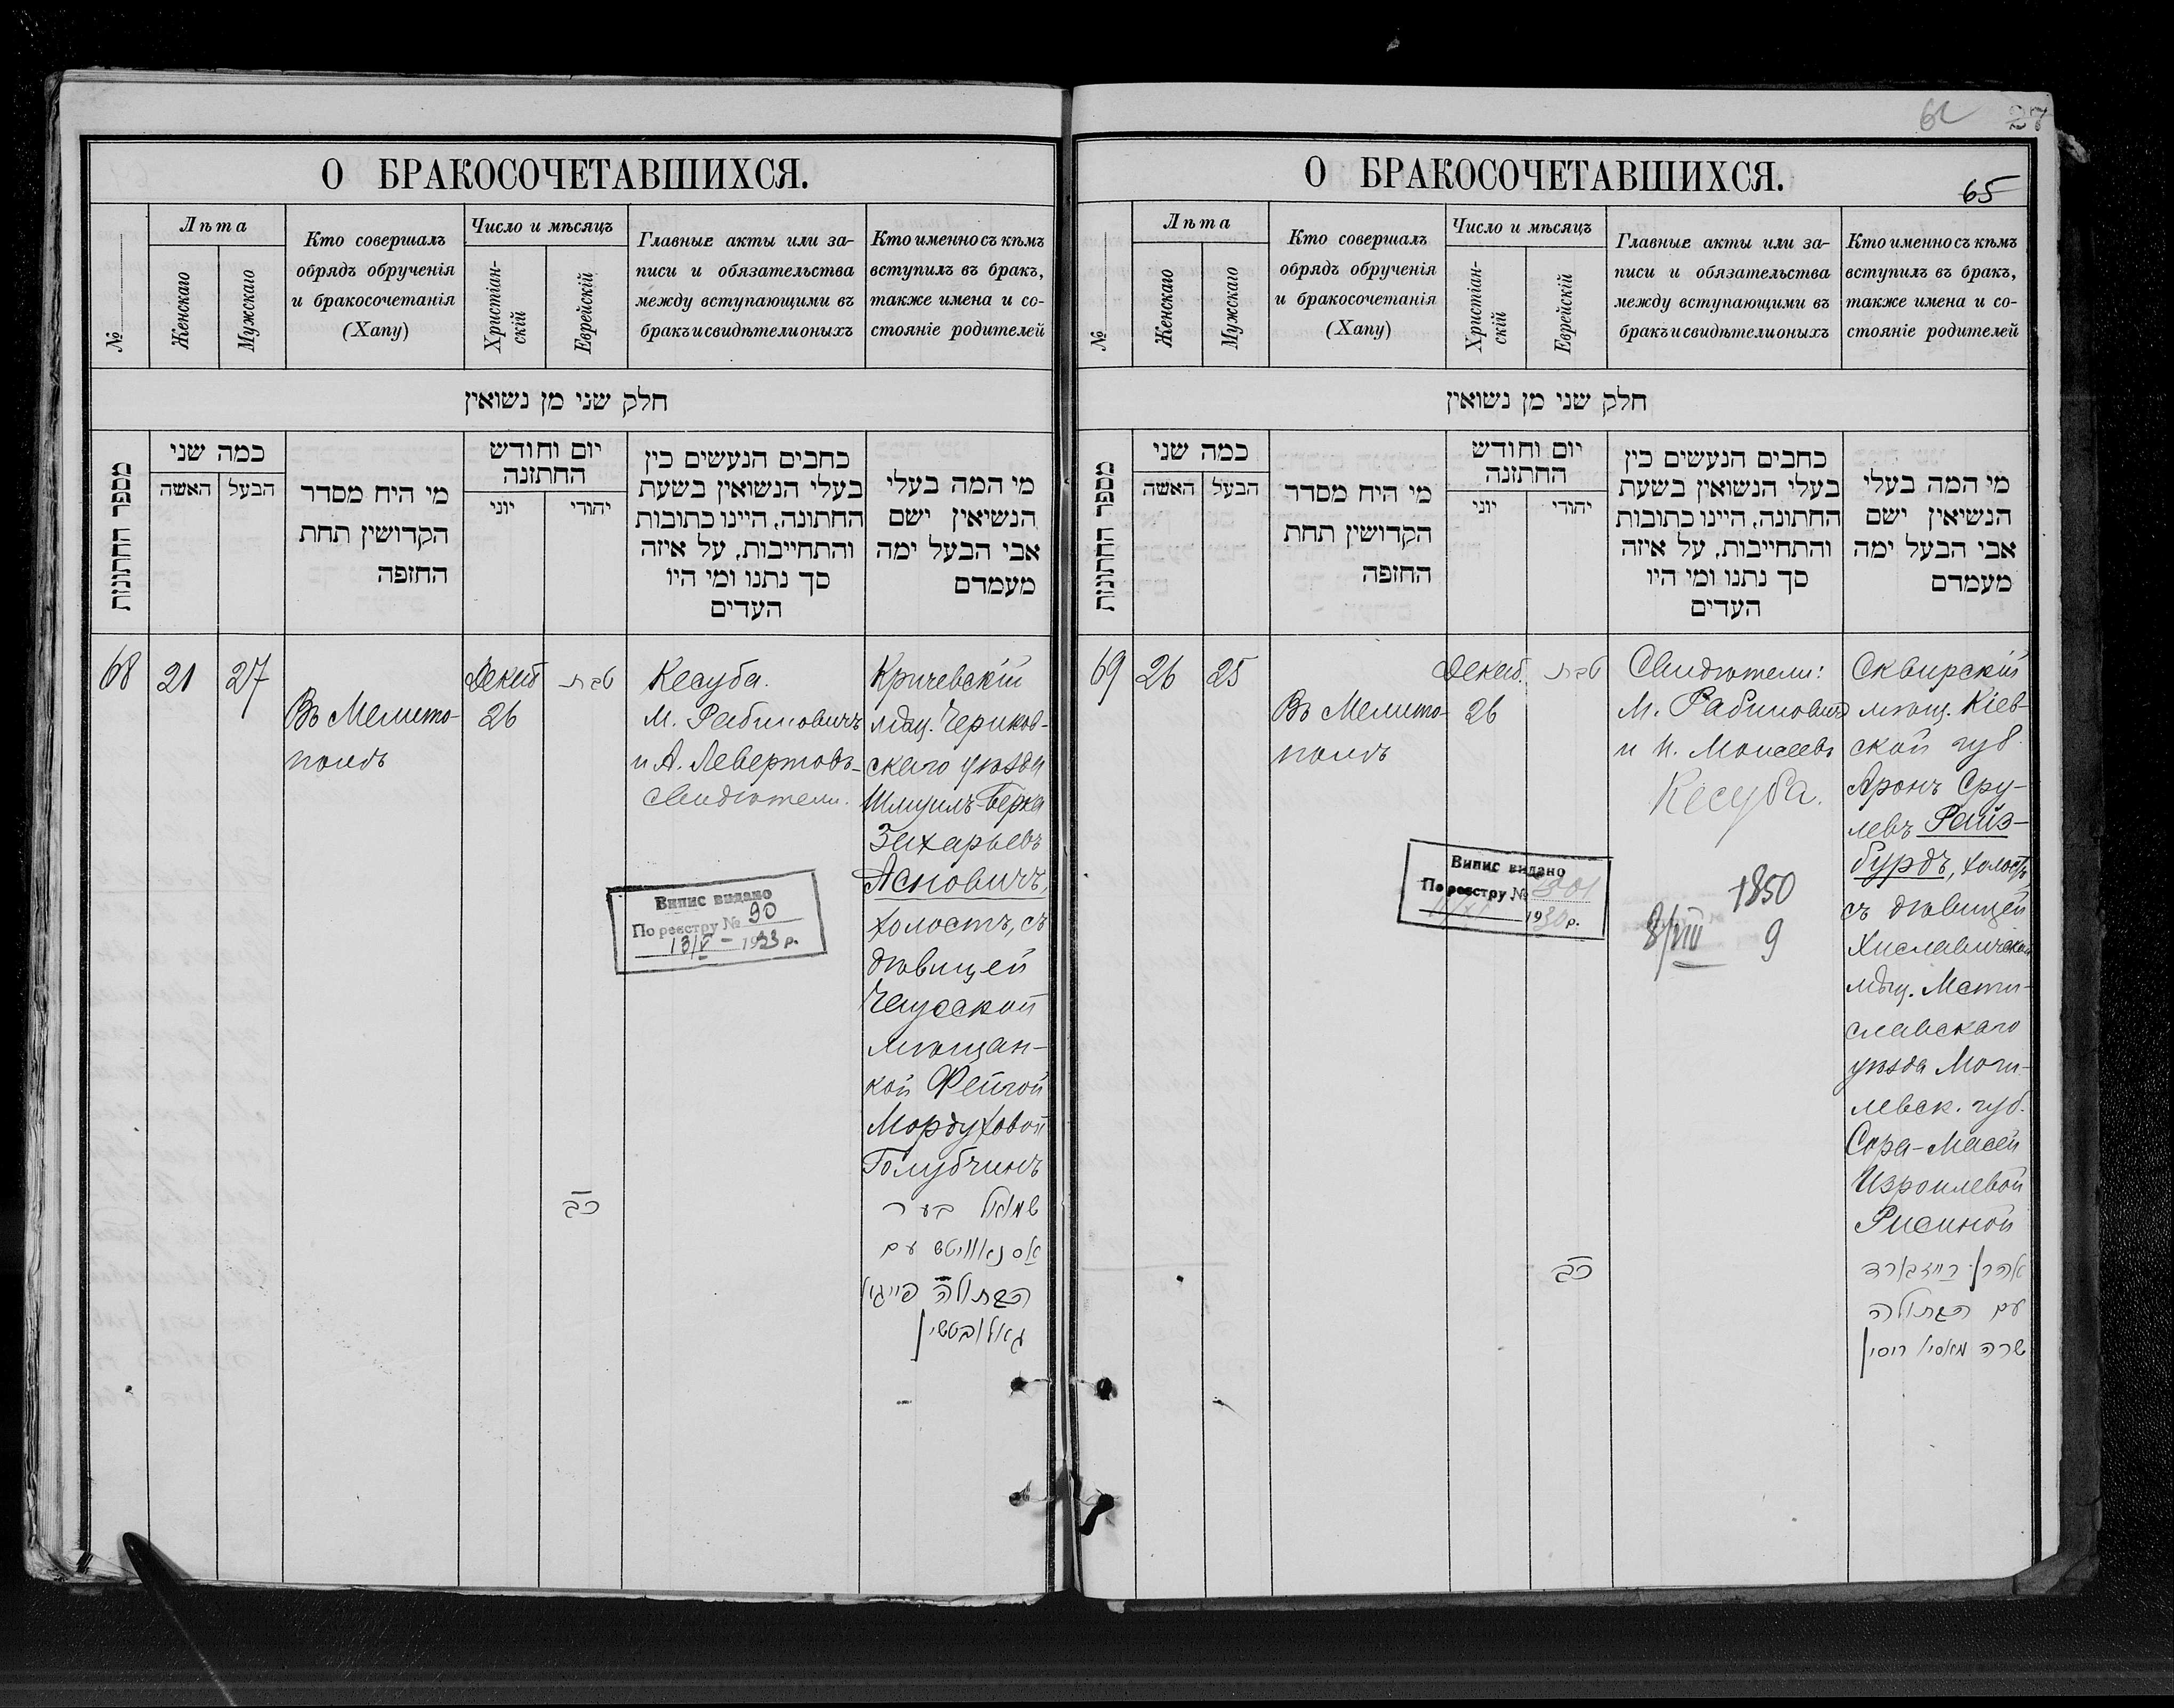 О БРАКОСОЧЕТАВШИХСЯ.
№
Лѣта
Женскаго
Мужскаго
Кто совершалъ
обрядъ обрученія
и бракосочетанія
(Хапу)
Число и мѣсяцъ
Христіан-
скій
Еврейскій
Главные акты или за-
писи и обязательства
между вступающими въ
бракъ и свидѣтели оныхъ
Кто именно съ кѣмъ
вступилъ въ бракъ,
также имена и со-
стояніе родителей
חלק שני מן נשואין
מספר החתונות
כמה שני
האשה
הבעל
מי היח מסדר
הקדושין תחת
החופה
יום וחודש
החתונה
יוני
יהודי
כחבים הנעשים כין
בעלי הנשואין בשעת
החתונה, היינו כתובות
והתחייבות, על איזה
סך נתנו ומי היו
העדים
מי המה בעלי
הנשיאין ישם
אבי הבעל ימה
מעמדם
68
21
27
Въ Мелито-
полѣ
Декаб
26
טבת
כב
Кесуба.
М. Рабиновичъ
и А. Левертовъ-
свидѣтели.
Випис видано
По реєстру № 90
13/V - 1933 р.
Кричевскій
мѣщ. Чериков-
скаго уѣзда
Шмуилъ-Берка
Захарьевъ
Асновичъ,
холостъ, съ
дѣвицей
Чаусской
мѣщан-
кой Фейгой
Мордуховой
Голубчинъ
שמואל בער
אסנאוויטש עם
הבתולה פייגל
גאלובטשין
62
27
О БРАКОСОЧЕТАВШИХСЯ.
65
№
Лѣта
Женскаго
Мужскаго
Кто совершалъ
обрядъ обрученія
и бракосочетанія
(Хапу)
Число и мѣсяцъ
Христіан-
скій
Еврейскій
Главные акты или за-
писи и обязательства
между вступающими въ
бракъ и свидѣтели оныхъ
Кто именно съ кѣмъ
вступилъ въ бракъ,
также имена и со-
стояніе родителей
חלק שני מן נשואין
מספר החתונות
כמה שני
האשה
הבעל
מי היח מסדר
הקדושין תחת
החופה
יום וחודש
החתונה
יוני
יהודי
כחבים הנעשים כין
בעלי הנשואין בשעת
החתונה, היינו כתובות
והתחייבות, על איזה
סך נתנו ומי היו
העדים
מי המה בעלי
הנשיאין ישם
אבי הבעל ימה
מעמדם
69
26
25
Въ Мелито-
полѣ
Декаб.
26
טבת
כב
Свидѣтели:
М. Рабиновичъ
и И. Моисеевъ
Кесуба.
Випис видано
По реєстру №
1930 р.
1850
8/VIII 9
Сквирскій
мѣщ. Кіев-
ской губ.
Аронъ Сру-
левъ Райз-
бурдъ, холостъ,
съ дѣвицей
Хиславичской
мѣщ. Мсти-
славскаго
уѣзда Моги-
левск. губ.
Сора-Масей
Изроилевой
Рисиной
אהרן רייזבורד
עם הבתולה
שרה מאסיא ריסין